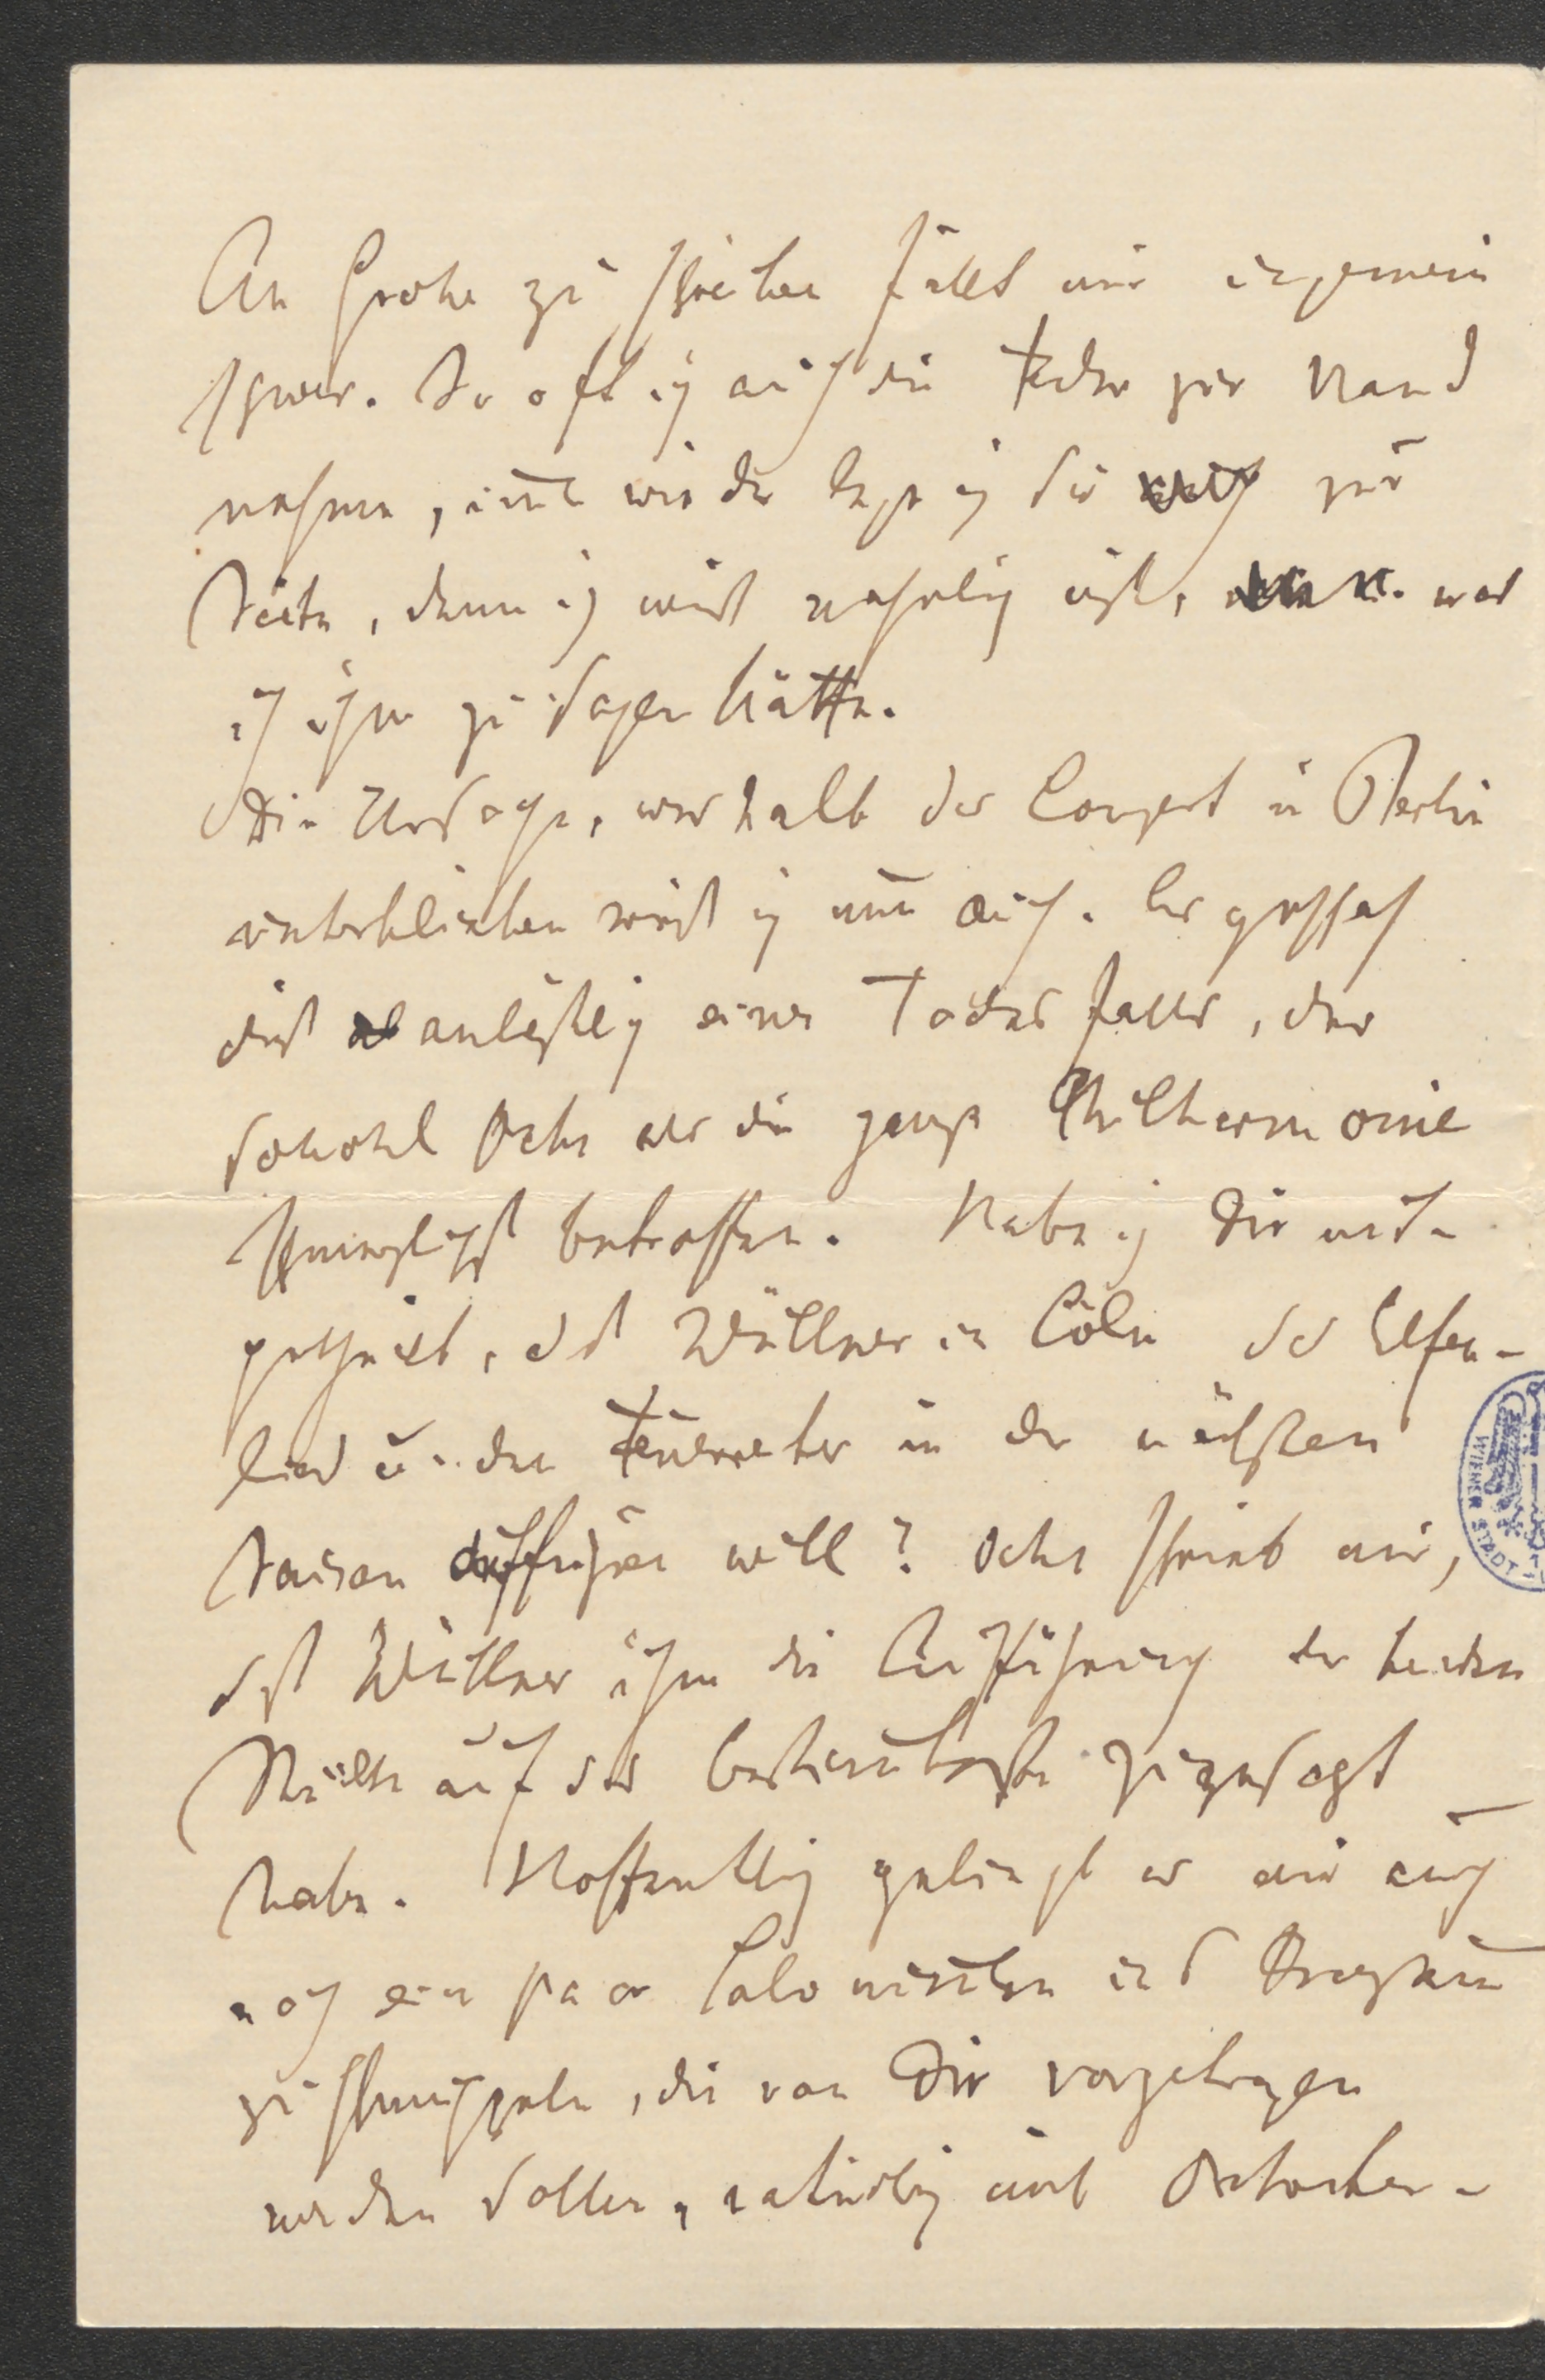 An Grohe zu schreiben fällt mir ungemein
schwer. So oft ich auch die Feder zur Hand
nehme, im̄er wieder lege ich sie auch zur
Seite, denn ich weiß wahrlich nicht, was
ich ihm zu sagen hätte.
Die Ursache, weshalb das Conzert in Berlin
unterblieben weiß ich nun auch. Es geschah
dieß anläßlich eines Todesfalls, der
sowohl Ochs als die ganze Philharmonie
schmerzlichst betroffen. Habe ich Dir mit-
getheilt, daß Wüllner in Cöln das Elfen-
lied u. den Feuerreiter in der nächsten
Saison aufführen will? Ochs schrieb mir,
daß Wüllner ihm die Aufführung der beiden
Stücke auf das bestim̄teste zugesagt
habe. Hoffentlich gelingt es mir auch
noch ein paar Solonum̄ern ins Program̄
zu schmuggeln, die von Dir vorgetragen
werden sollen, natürlich mit Orchester-
WIENER STADT-